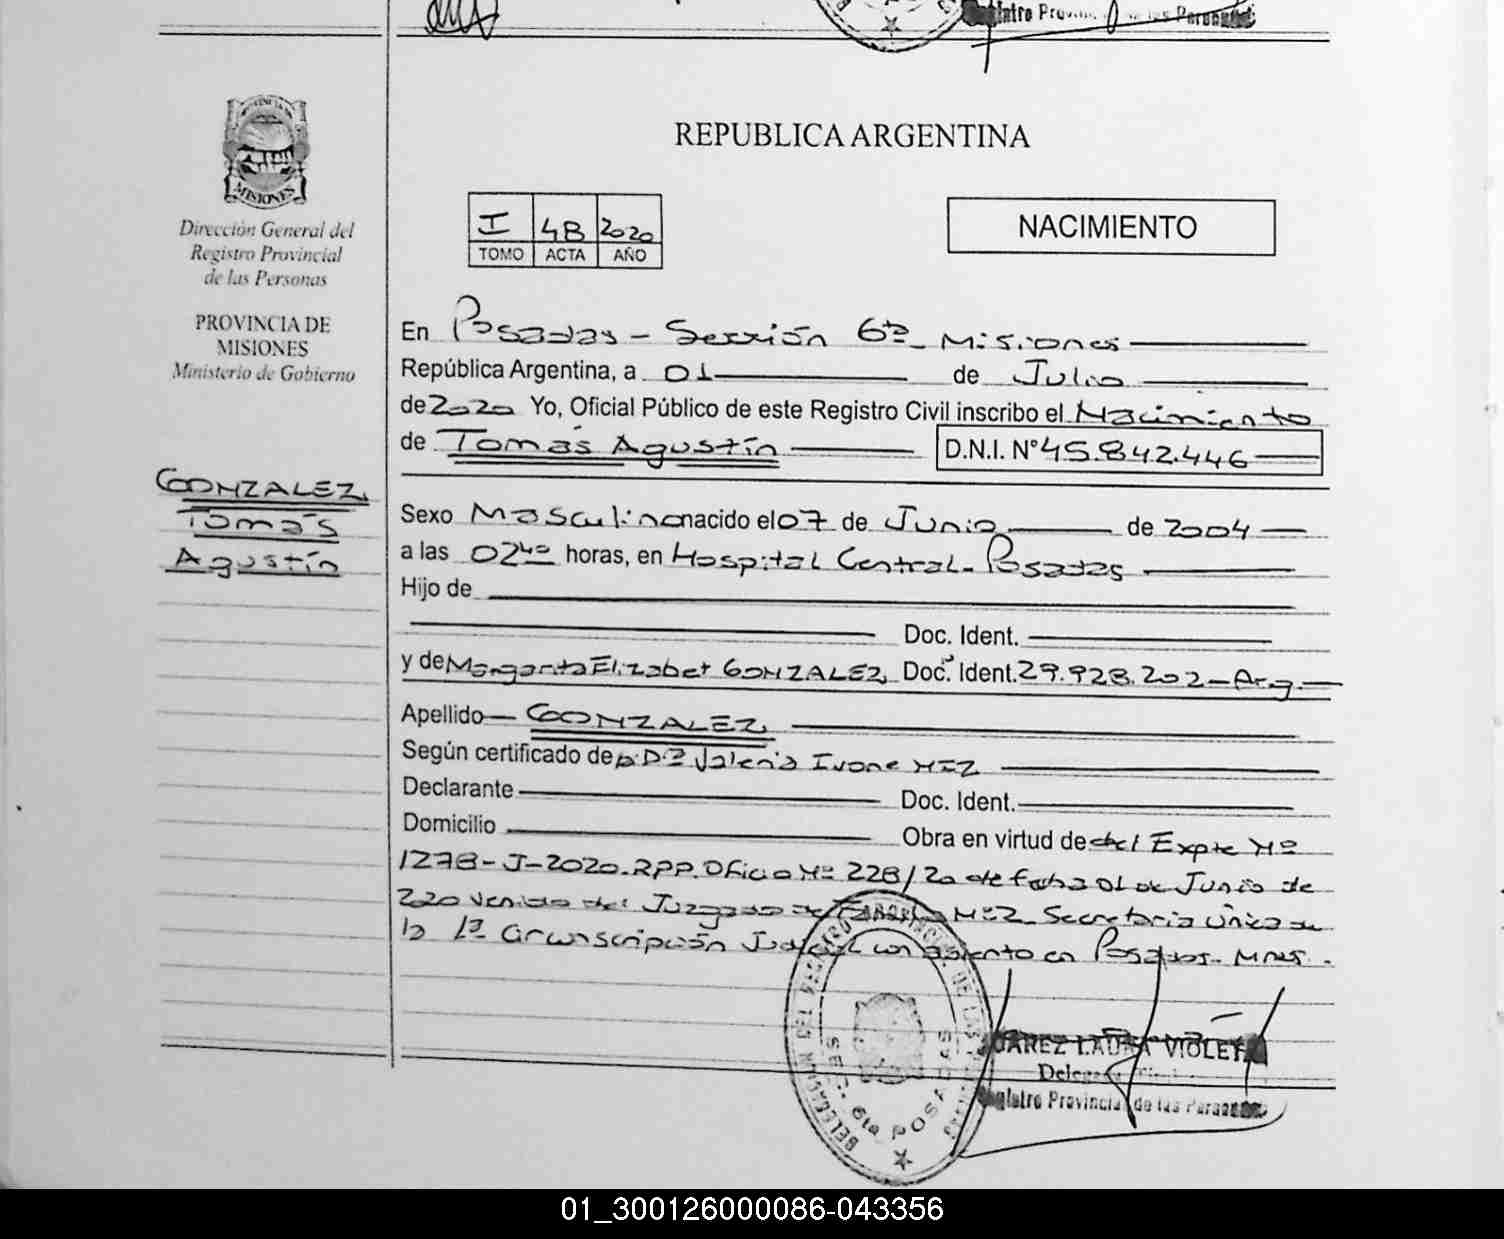 REPUBLICA ARGENTINA
MISIONES
Dirección General del
Registro Provincial
de las Personas
PROVINCIA DE
MISIONES
Ministerio de Gobierno
I 48 2020
TOMO ACTA AÑO
NACIMIENTO
En Posadas - Sección 6ta - Misiones
República Argentina, a 01 de Julio
de 2020 Yo, Oficial Público de este Registro Civil inscribo el Nacimiento
de Tomás Agustín D.N.I. N° 45.842.446
GONZALEZ,
Tomás
Agustín
Sexo Masculino nacido el 07 de Junio de 2004
a las 02:40 horas, en Hospital Central - Posadas
Hijo de
Doc. Ident.
y de Margarita Elizabet GONZALEZ, Doc. Ident. 29.928.202 - Arg.
Apellido GONZALEZ,
Según certificado de Valeria Ivone
Declarante Doc. Ident.
Domicilio Obra en virtud de del Expte Nº
1278-J-2020. RPP. Oficio Nº 228/20 de fecha 01 de Junio de
venido del Juzgado de Familia Nº 2 Secretaria única de
la 1ª Circunscripción Judicial con asiento en Posadas - Mnes.
DELEGACION DEL REGISTRO PROVINCIAL DE LAS PERSONAS
SEC. 6ta. POSADAS
JUAREZ LAURA VIOLETA
Registro Provincial de las Personas
01_300126000086-043356